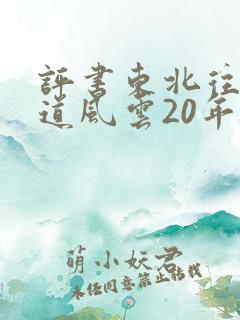 評書東北往
道風雲20年
萌小妖君
未经同意禁止转载